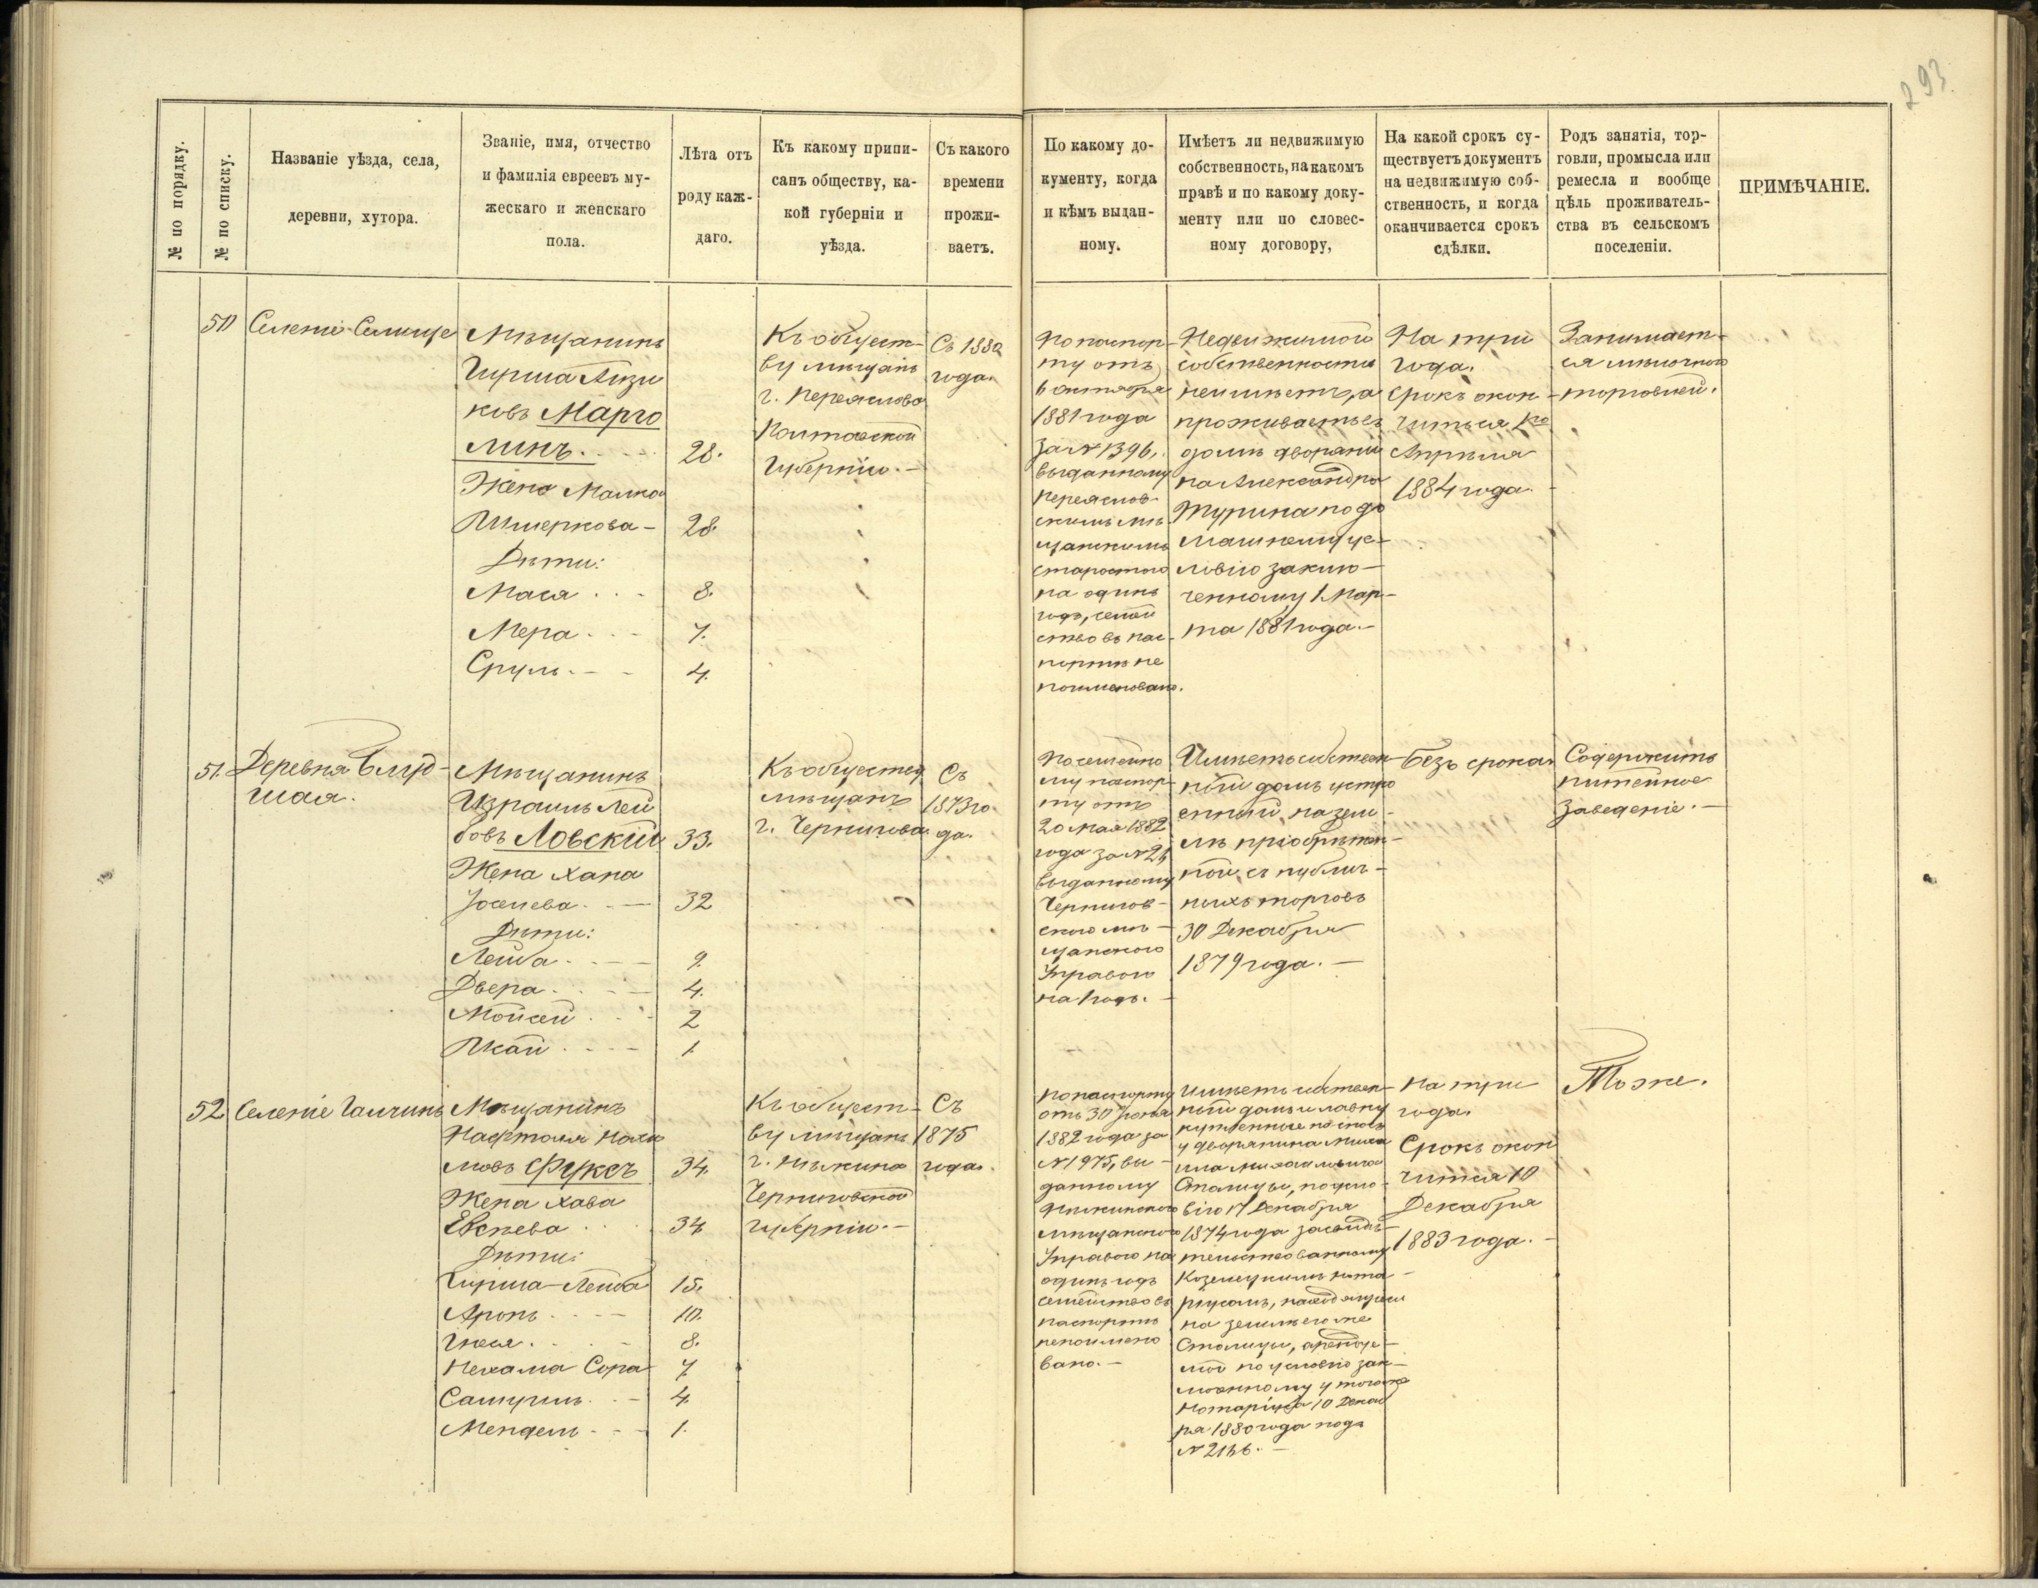 293
№ по порядку.
№ по списку.
Названіе уѣзда, села,
деревни, хутора.
Званіе, имя, отчество
и фамилія евреевъ му-
жескаго и женскаго
пола.
Лѣта отъ
роду каж-
даго.
Къ какому припи-
санъ обществу, ка-
кой губерніи и
уѣзда.
Съ какого
времени
прожи-
ваетъ.
По какому до-
кументу, когда
и кѣмъ выдан-
ному.
Имѣетъ ли недвижимую
собственность, на какомъ
правѣ и по какому доку-
менту или по словес-
ному договору,
На какой срокъ су-
ществуетъ документъ
на недвижимую соб-
ственность, и когда
оканчивается срокъ
сдѣлки.
Родъ занятія, тор-
говли, промысла или
ремесла и вообще
цѣль проживатель-
ства въ сельскомъ
поселеніи.
ПРИМѢЧАНІЕ.
50
Селеніе Селище
Мѣщанинъ
Гирша Айзи
ковъ Марго
линъ. 28.
Жена Малка
Шмеркова – 28.
Дѣти:
Мася 8.
Мера 7.
Сруль 4.
Къ общест-
ву мѣщанъ
г. Переяслова
Полтавской
Губерніи.
Съ 1880
года.
По паспор-
ту отъ
6 октября
1881 года
за № 1396,
выданному
Переяслов-
скимъ мѣ
щанскимъ
старостою
на одинъ
годъ, семей
ство въ пас-
портѣ не
поименовано.
Недвижимой
собственности
неимѣетъ, а
проживаетъ въ
домѣ дворяни
на Александра
Турина по до
машнему ус-
ловію заклю-
ченному 1 Мар-
та 1881 года.
На три
года.
Срокъ окон-
читься 1го
Апрѣля
1884 года.
Занимает-
ся мѣлочною
торговлей.
51.
Деревня
шая.
Мѣщанинъ
Израиль Лей
бовъ Ловскій 33.
Жена Хана
Іосиева 32
Дѣти:
Лейба 9.
Двера 4.
Мойсей 2
Шкай 1.
Къ обществу
мѣщанъ
г. Чернигова.
Съ
1873 го
да.
По семейно
му паспор-
ту отъ
20 Мая 1882
года за № 21
выданному
Чернигов-
скою мѣ-
щанскою
Управою
на 1 годъ.
Имѣетъ собствен-
ный домъ устро
енный на зем-
лѣ пріобрѣтен-
ной съ публич-
ныхъ торговъ
30 Декабря
1879 года.
безъ срока.
Содержитъ
питейное
заведеніе.
52
Селеніе Галчинъ
Мѣщанинъ
Нафтоля Нахи
мовъ Фуксъ 34.
Жена Хава
Евсѣева 34
Дѣти:
Гирша-Лейба 15.
Аронъ 10.
Гися 8.
Нехама Сора 7.
Самуиль 4.
Мендель 1.
Къ общест-
ву мѣщанъ
г. Нѣжина
Черниговской
губерніи.
Съ
1875
года.
По паспорту
отъ 30 Іюня
1882 года за
№ 1975, вы-
данному
Нѣжинского
мѣщанского
Управою на
одинъ годъ
семейство въ
паспортѣ
непоимено
вано.
Имѣетъ собствен-
ный домъ и лавку
купленные на сносъ
у дворянина Миха
ила Михайловича
Столицы, по усло-
вію 17 Декабря
1874 года засвидѣ-
тельствованному
Козелецкимъ нота-
ріусомъ, находящіеся
на землѣ его же
Столицы, арендуе-
мой по условію зак-
люченному у того же
Нотаріуса 10 Декаб
ря 1880 года подъ
№ 2166.
На три
года.
Срокъ окон
чится 10
Декабря
1883 года.
Тоже.